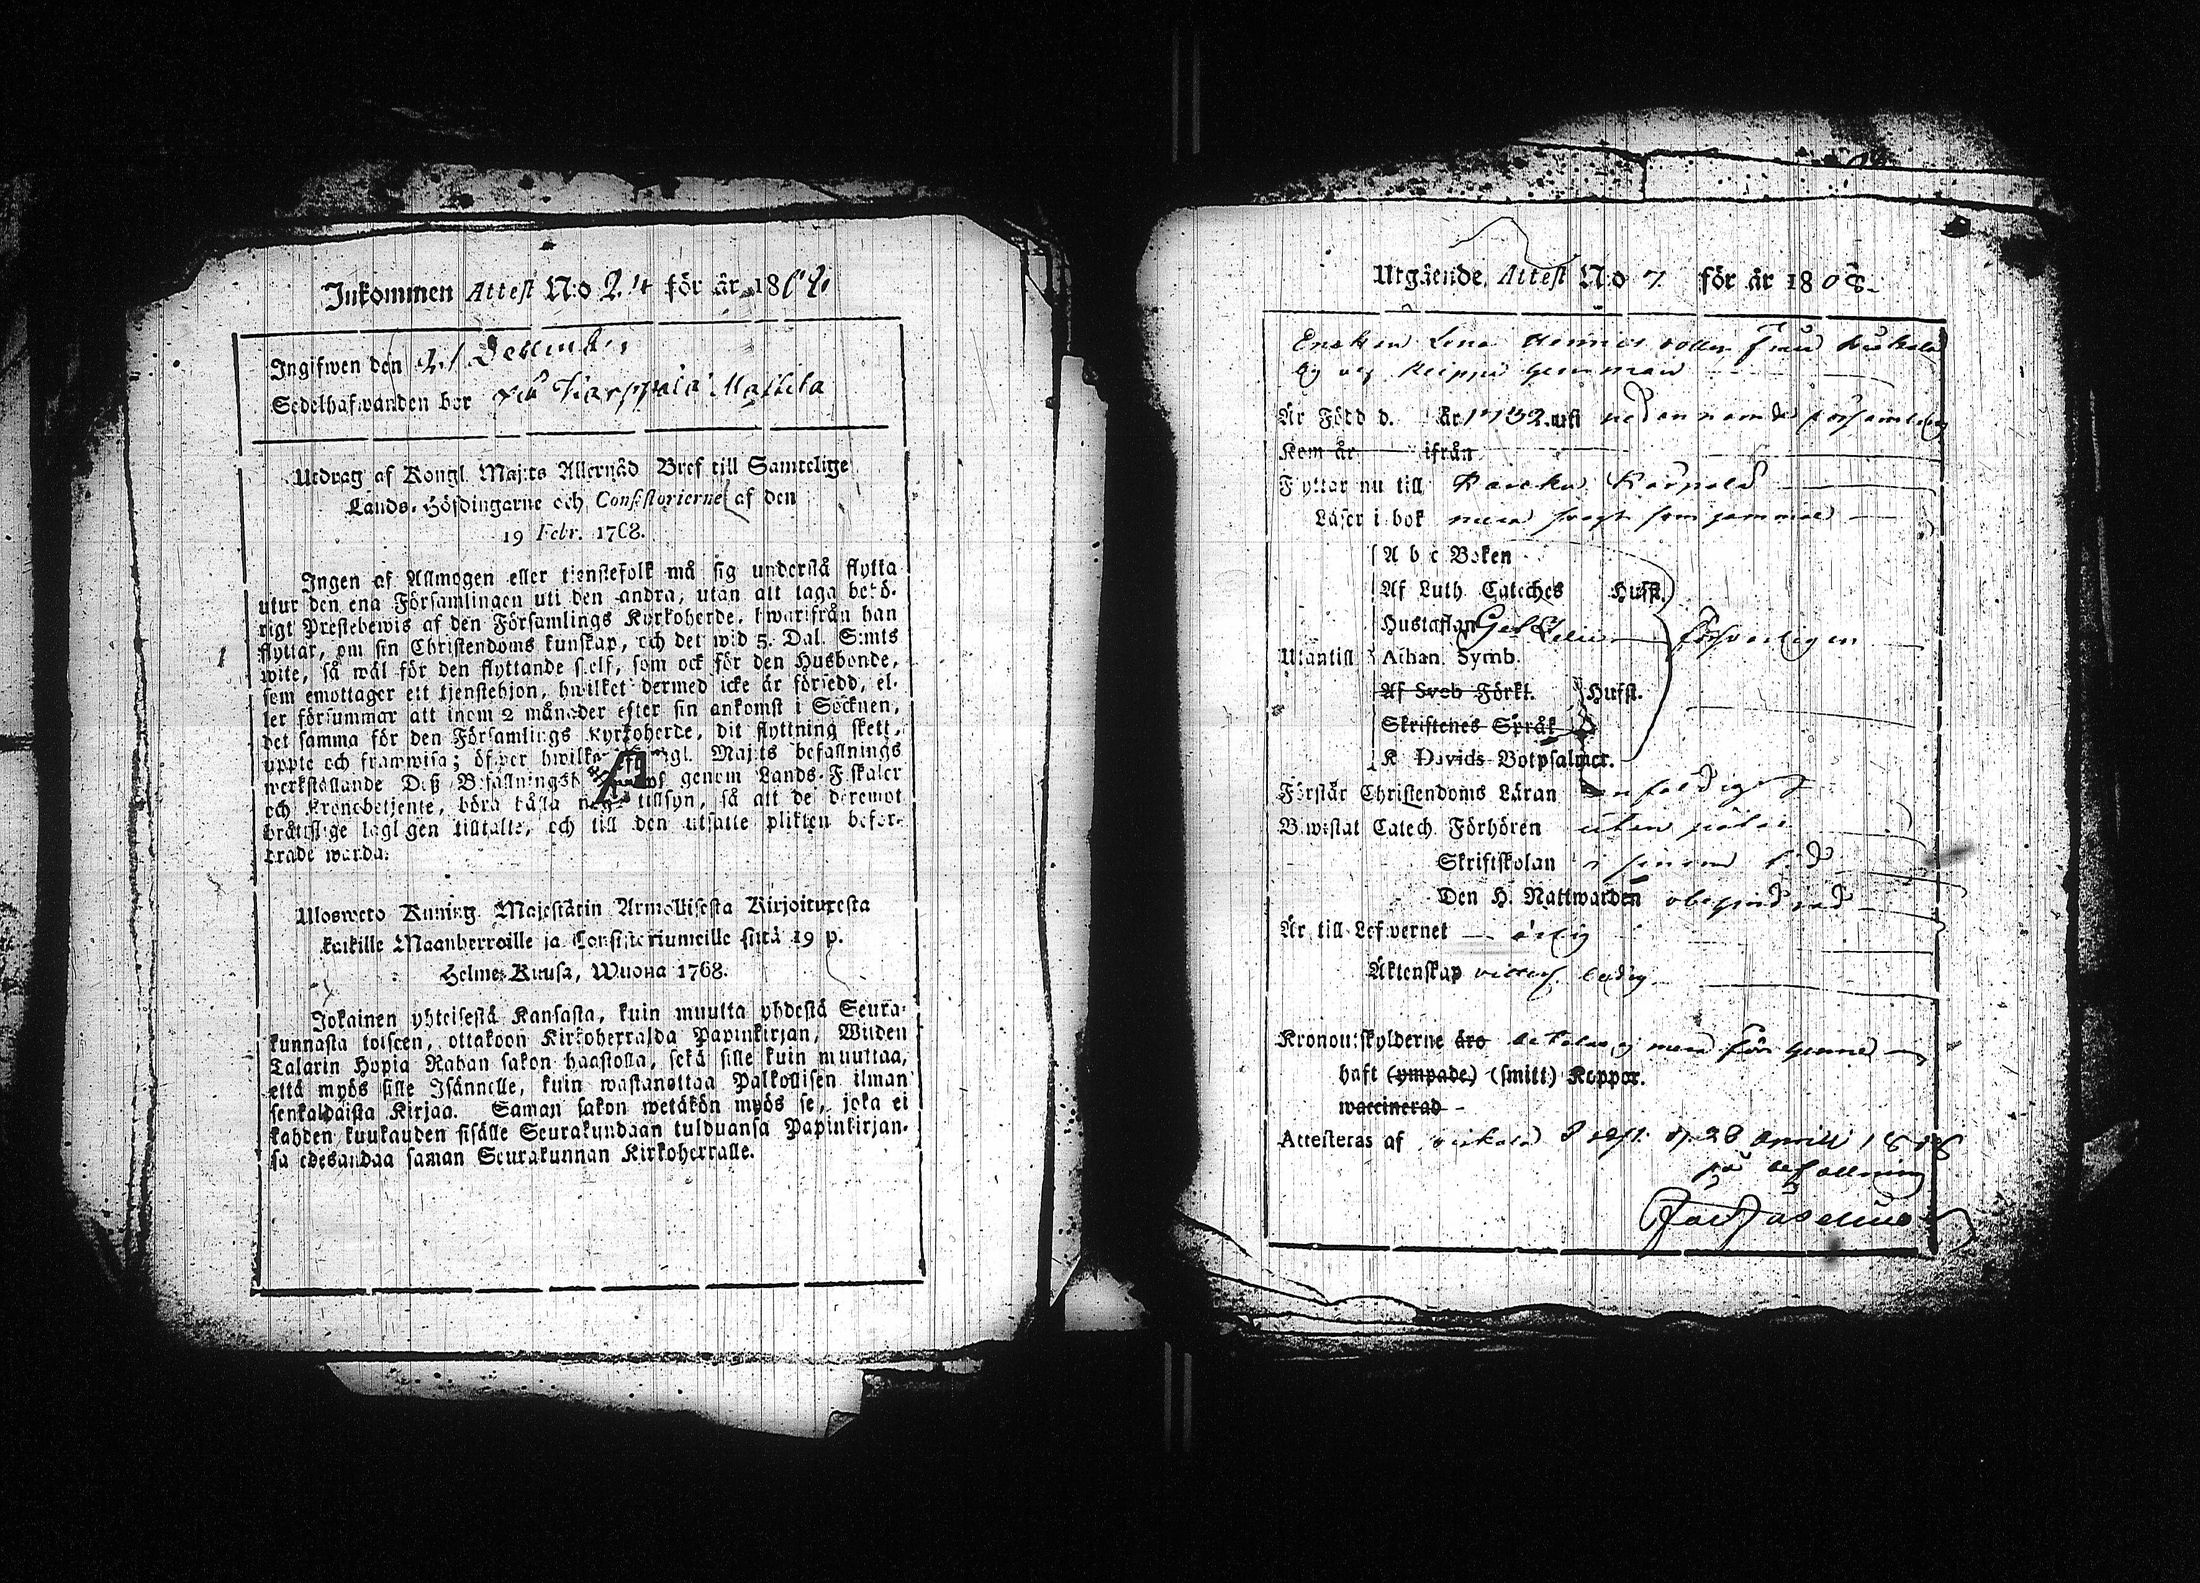 Inkommen Attest N:o 24 för år 180
Ingifwen den 21 December
Sedelhafwanden bor på Karppala Mattila
Utdrag af Kongl. Maj:ts Allernåd Bref till Samtelige
Lands-Höfdingarne och Consistorierne af den
19 Febr. 1768.
Ingen af Allmogen eller tjenstefolk må sig understå flytta
utur den ena Församlingen uti den andra, utan att taga behö-
rigt Prestebewis af den Församlings Kyrkoherde, hwarifrån han
flyttar, om sin Christendoms kunskap, och det wid 5. Dal. S:mts
wite, så wäl för den flyttande sjelf, som ock för den Husbonde,
som emottager ett tjenstehjon, hwilket dermed icke är försedd, el-
ler försummar att inom 2 månader efter sin ankomst i Söcknen,
det samma för den Församlings Kyrkoherde, dit flyttning skett,
uppte och framwisa; öfwer hwilka Kongl. Maj:ts befallnings
werkställande Deß Befallningsh genom Lands-Fiskaler
och Kronobetjente, böra hålla noga tillsyn, så att de deremot
bråttslige lagligen tilltalte, och till den utsatte plikten befor-
drade warda.
Uloswето Kuning. Majestätin Armollisesta Kirjoituxesta
kaikille Maanherroille ja Consistoriumeille siitä 19 p.
Helme-Kuusa, Wuona 1768.
Jokainen yhteisestä Kansasta, kuin muutta yhdestä Seura-
kunnasta toiseen, ottakoon Kirkoherralda Papinkirjan, Wiiden
Talarin Hopia Rahan sakon haastolla, sekä sille kuin muuttaa,
että myös sille Isännelle, kuin wastanottaa Palkollisen ilman
senkaldaista Kirjaa. Saman sakon wetäkön myös se, joka ei
kahden kuukauden sisälle Seurakundaan tulduansa Papinkirjan-
sa edesandaa saman Seurakunnan Kirkoherralle.
Utgående Attest N:o 7 för år 1808
Enckan Lena Henrics dotter från
by och
Är Född d. år 1732. uti nedannämde församling
Kom år ifrån
Flyttar nu till
Läser i bok mera svagt som gammal
A b c Boken
Af Luth. Cateches Husst.
Hustaflan
Utantill Athan. Symb. försvarligen
Af Sveb Förkl. Husst.
Skriftenes Språk
K. Davids Botpsalmer.
Förstår Christendoms Läran enfaldigt
Bewistat Catech. Förhören utan
Skriftskolan i sinom tid
Den H. Nattwarden obehindrad
Är till Lefwernet ärlig
Äktenskap ledig
Kronoutskylderne äro betalas ej mera för henne
haft (ympade) (smitt) Koppor.
waccinerad
Attesteras af 28 April 1808
på befallning